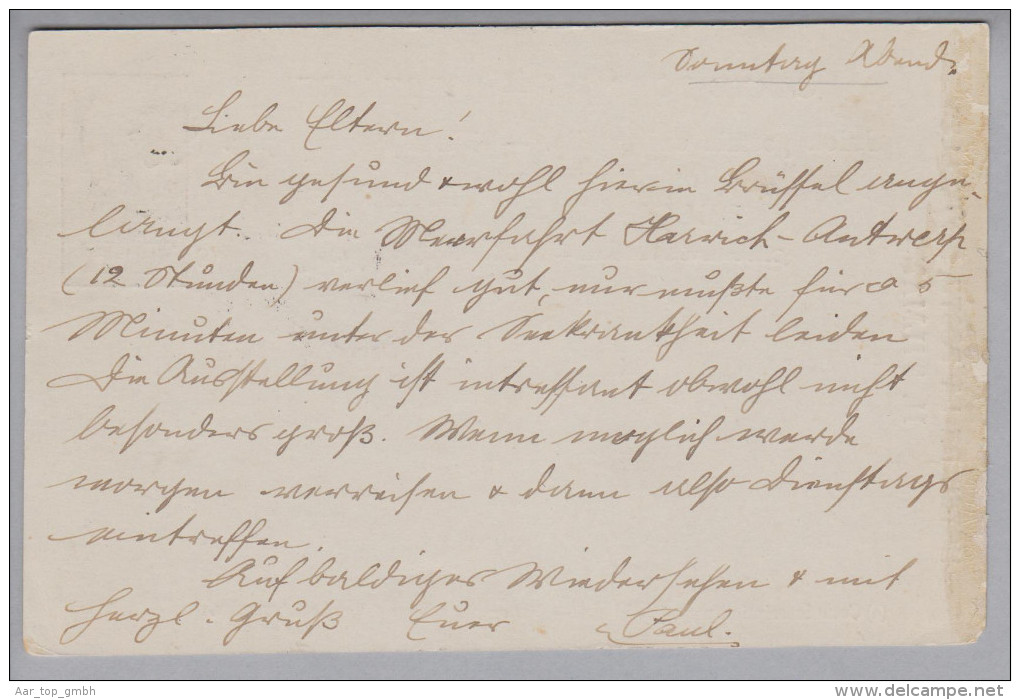 Sonntag Abend.
Liebe Eltern!
Bin gesund & wohl hier in Brüssel ange-
langt. Die Meerfahrt Harwich - Antwerp
(12 Stunden) verlief gut, nur mußte für ca 5
Minuten unter der Seekrankheit leiden
Die Ausstellung ist intressant obwohl nicht
besonders groß. Wenn möglich werde
morgen verreisen & dann also Dienstags
eintreffen.
Auf baldiges Wiedersehen & mit
herzl. Gruß Euer Paul.
Aar_top_gmbh
delcampe.net